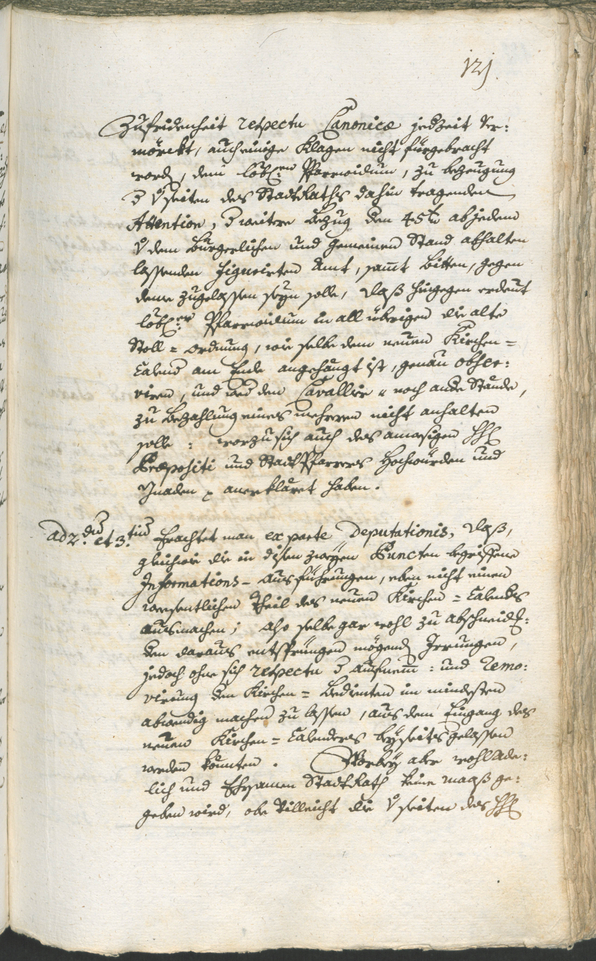 121.
Zufridenheit respectu Canonicæ jedzeit ver:
mörckt, auch einige Klagen nicht fürgebracht
word, dem löbl: Pfarrwidum, zu bezeugung
seiten des StadtRaths dahin tragenden
Attention, weitere bezug den 45 x ab jedem
dem bürgerlichen und gemeinen Stand abhalten
lassenden figurirten Amt, samt bitten, gegen
deme zugelassen seyn solle, daß hingegen erdeut
löbl: Pfarrwidum in all übrigen die alte
Stoll = ordnung, wie selbe dem neuen Kirchen =
Calend am Ende angehängt ist, genau obser:
viren, und den Cavallier noch andre Stände,
zu bezahlung eines mehreren nicht anhalten
solle: worzu sich auch des
Præpositi und StadtPfarrers Hochwürden und
Gnaden anerkläret haben.
ad 2.dum et 3.tium Erachtet man ex parte Deputationis, daß,
gleichwie die in disen zweyen Puncten begriffene
Informations = ausführungen, eben nicht einen
wesentlichen theil des neuen Kirchen = Calenders
ausmachen; also selbe gar wohl zu abschneid:
den daraus entspringen mögend Irrungen,
jedoch ohne sich respectu aufnem: und remo:
virung den Kirchen = bedienten im mindesten
abwendig machen zu lassen, aus dem Eingang des
neuen Kirchen = Calenders beyseits gelassen
werden könnten. Worbey aber wohl Ade:
lich und Ehrsamen StadtRath keine maaß ge:
geben wird, obe villeicht die seiten des